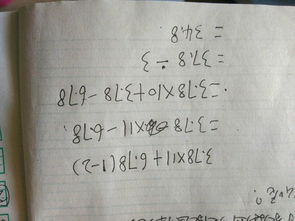 3.78×11+6.78(1-2)
=3.78×11-6.78
=3.78×10+3.78-6.78
=37.8÷3
=34.8